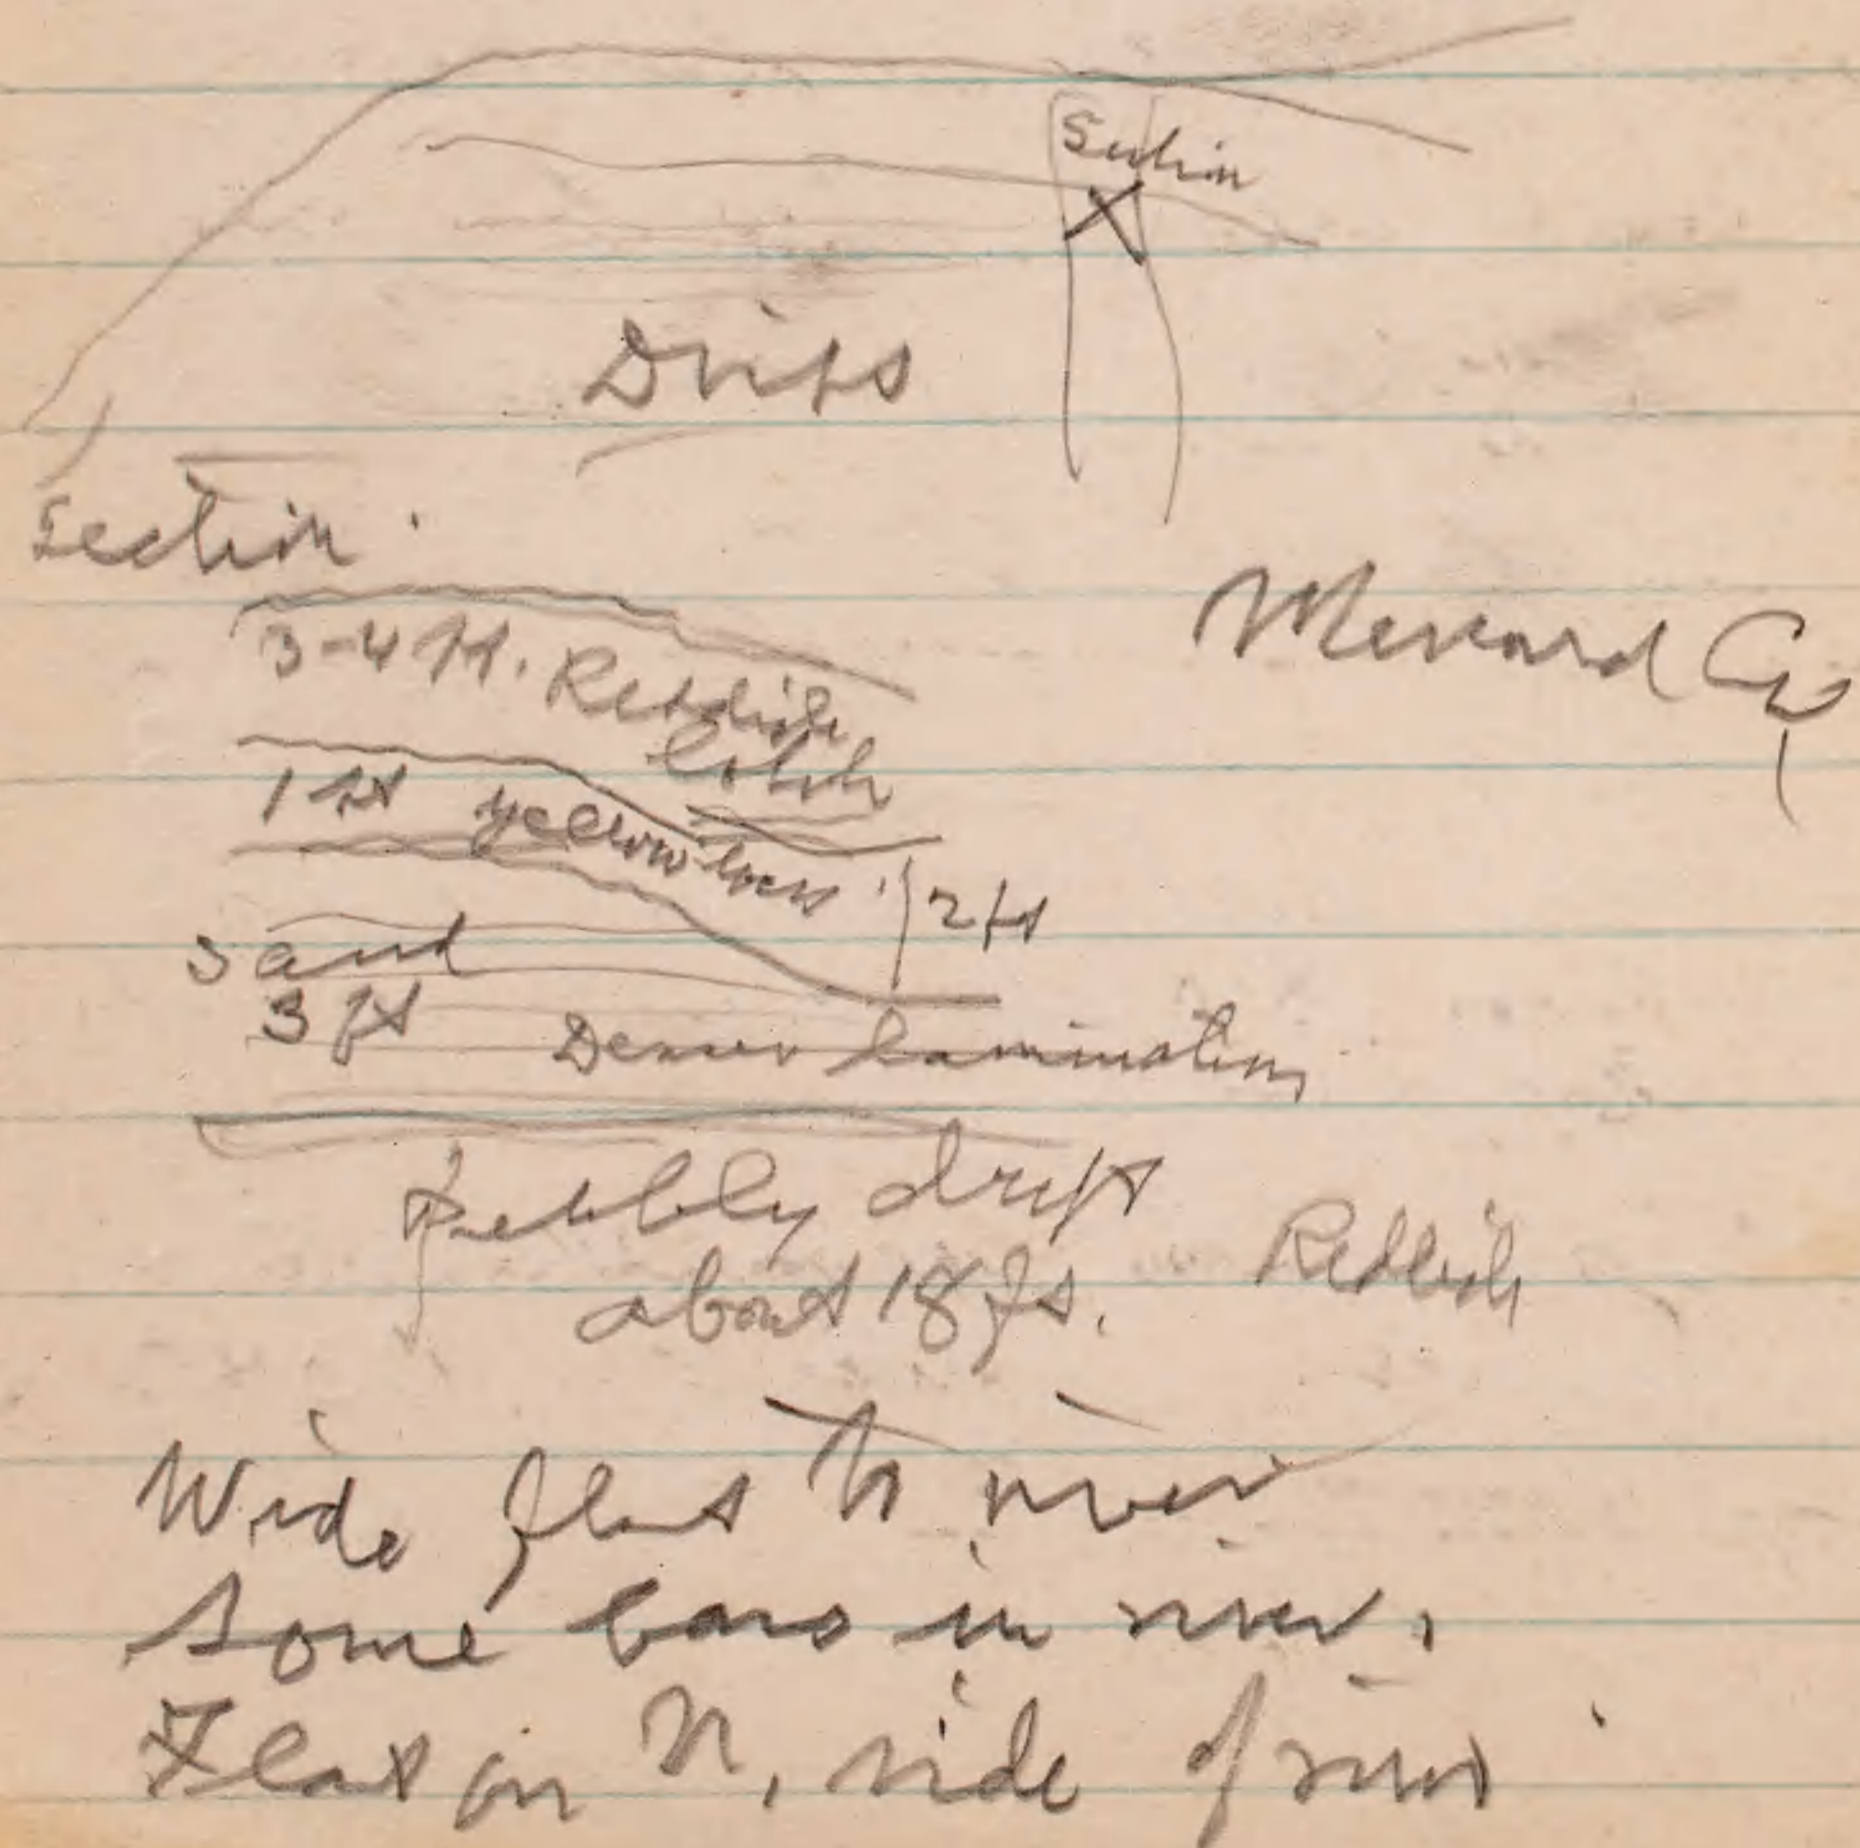 Section
Drift
Section.
3-4 ft. Reddish
Menard Co
1 ft yellow loess. 2 ft
Sand
3 ft Denser lamination
Pebbly drift
about 18 ft. Reddish
Wide flat to river
Some bars in river.
Flat on N. side of river